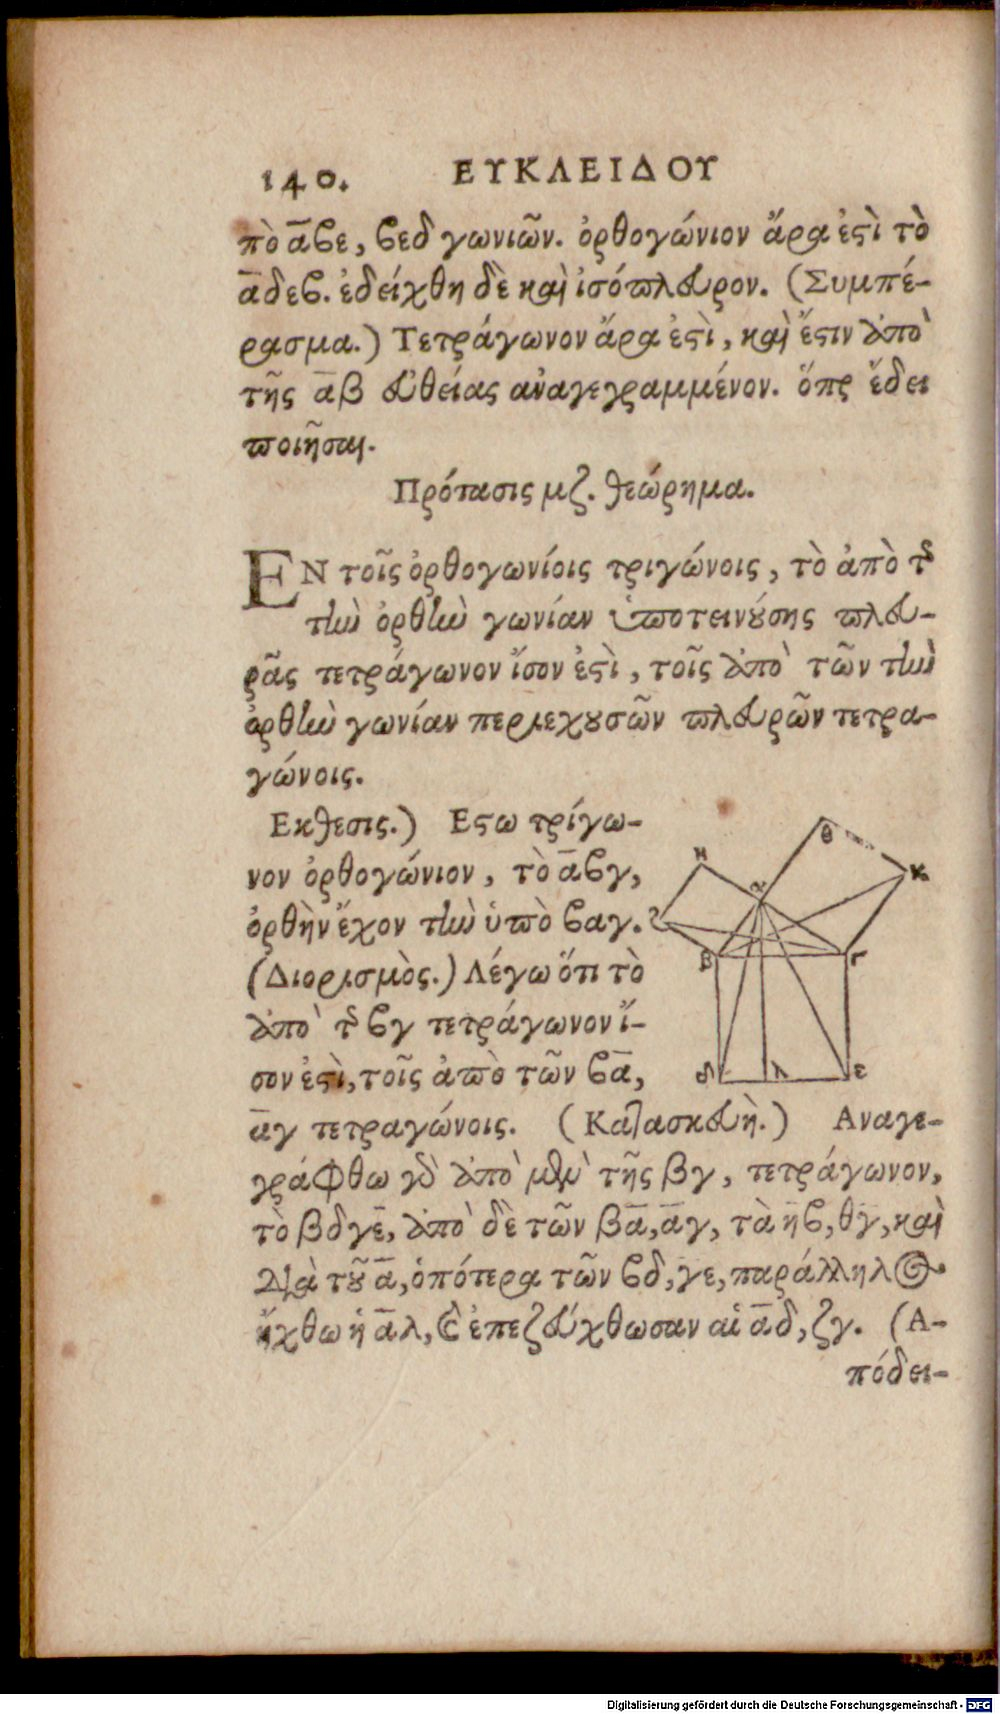 140. ΕΥΚΛΕΙΔΟΥ
πὸ α̅βε, βεδ γωνιῶν. ὀρθογώνιον ἄρα ἐστὶ τὸ
α̅δεβ. ἐδείχθη δὲ καὶ ἰσόπλευρον. (Συμπέ-
ρασμα.) Τετράγωνον ἄρα ἐστὶ, καὶ ἔστιν ἀπὸ
τῆς α̅β εὐθείας ἀναγεγραμμένον. ὅπερ ἔδει
ποιῆσαι.
Πρότασις μζ. θεώρημα.
ΕΝ τοῖς ὀρθογωνίοις τριγώνοις, τὸ ἀπὸ τῆς
τὴν ὀρθὴν γωνίαν ὑποτεινούσης πλευ-
ρᾶς τετράγωνον ἴσον ἐστὶ, τοῖς ἀπὸ τῶν τὴν
ὀρθὴν γωνίαν περιεχουσῶν πλευρῶν τετρα-
γώνοις.
Εκθεσις.) Εστω τρίγω-
νον ὀρθογώνιον, τὸ α̅βγ,
ὀρθὴν ἔχον τὴν ὑπὸ βαγ.
(Διορισμὸς.) Λέγω ὅτι τὸ
ἀπὸ τῆς βγ τετράγωνον ἴ-
σον ἐστὶ, τοῖς ἀπὸ τῶν βα̅,
α̅γ τετραγώνοις. (Κατασκευὴ.) Αναγε-
γράφθω γὸ ἀπὸ μὲν τῆς βγ, τετράγωνον,
τὸ βδγε̅, ἀπὸ δὲ τῶν βα̅, α̅γ, τὰ η̅β, θγ̅, καὶ
διὰ τοῦ α̅, ὁπότερα τῶν βδ, γε, παράλληλος
ἤχθω ἡ α̅λ, καὶ ἐπεζεύχθωσαν αἱ α̅δ, ζγ. (Α-
πόδει-
θ
η
κ
α
ζ
β
γ
δ
λ
ε
Digitalisierung gefördert durch die Deutsche Forschungsgemeinschaft - DFG